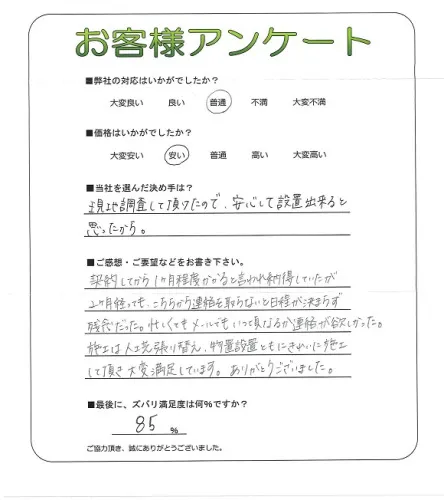 お客様アンケート
■弊社の対応はいかがでしたか？
大変良い 良い 普通 不満 大変不満
■価格はいかがでしたか？
大変安い 安い 普通 高い 大変高い
■当社を選んだ決め手は？
現地調査して頂けたので、安心して設置出来ると
思ったから。
■ご感想・ご要望などをお書き下さい。
契約してから1ヶ月程度かかると言われ納得していたが
1ヶ月経っても、こちらから連絡を取らないと日程が決まらず
残念だった。忙しくてもメールでもいつ頃なるか連絡が欲しかった。
施工は人工芝張り替え、物置設置ともにきれいに施工
して頂き大変満足しています。ありがとうございました。
■最後に、ズバリ満足度は何%ですか？
85 %
ご協力頂き、誠にありがとうございました。